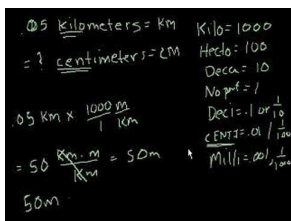 .05 kilometers = KM
= ? centimeters = CM
.05 KM x 1000 m / 1 KM
= 50 Km · m / Km = 50m
50m
Kilo = 1000
Hecto = 100
Deca = 10
No pref = 1
Deci = .1 or 1/10
CENTI = .01 / 1/100
Milli = .001, 1/1000